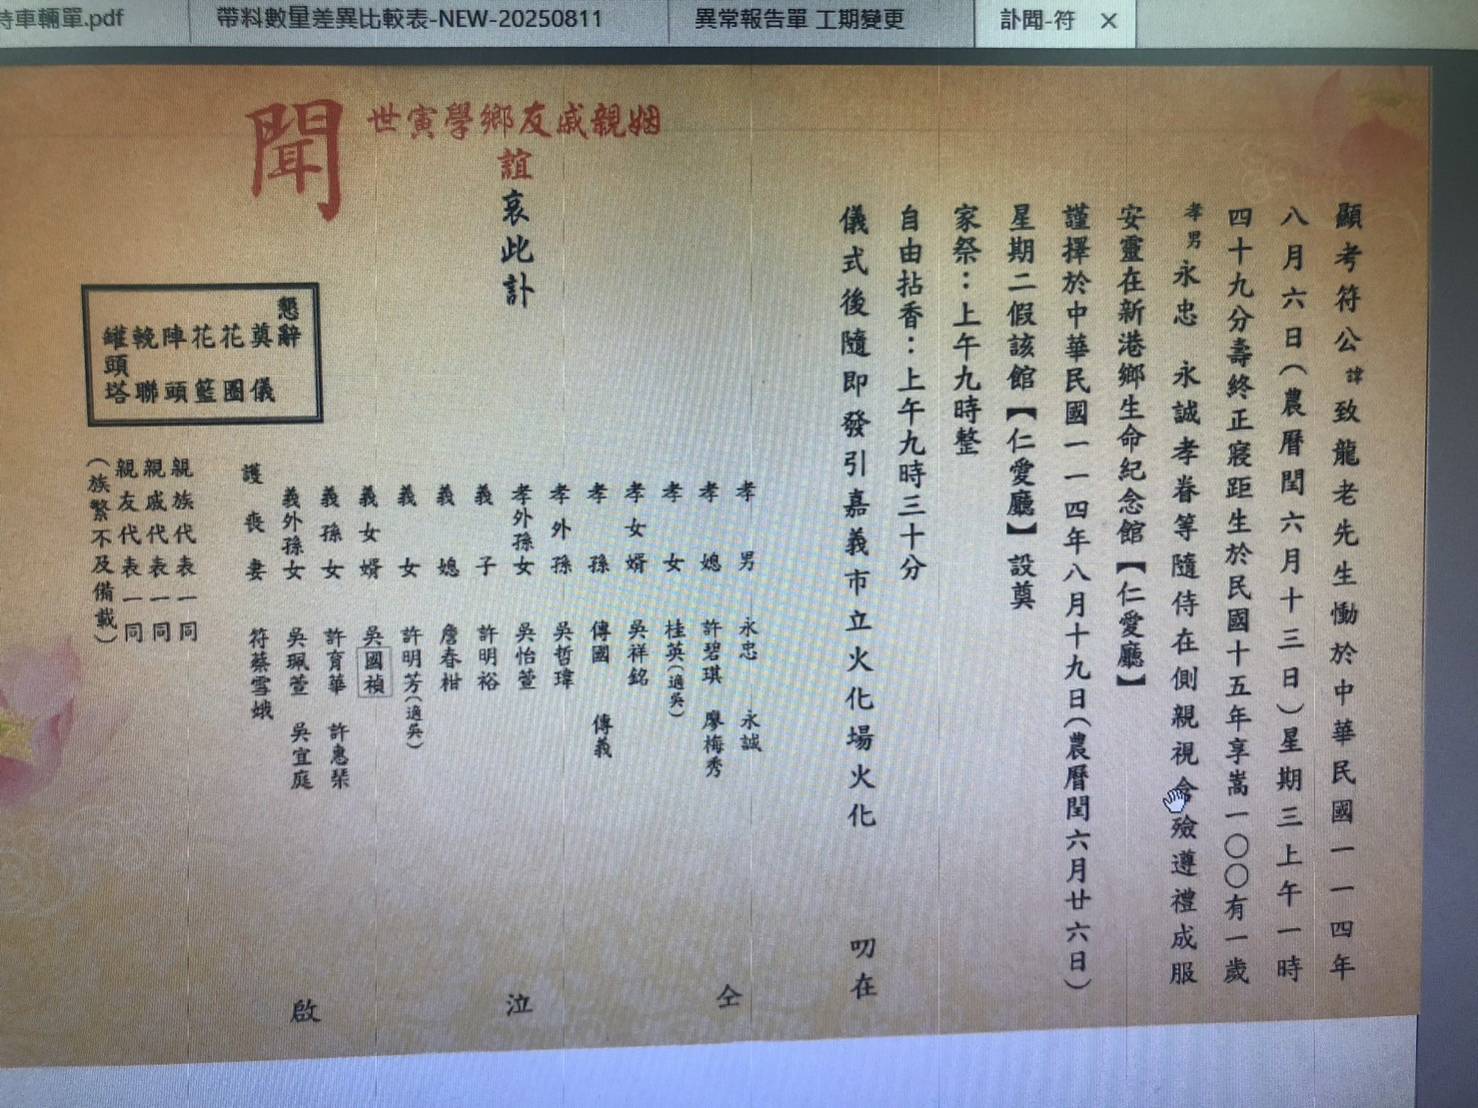 待車輛單.pdf
帶料數量差異比較表-NEW-20250811
異常報告單 工期變更
訃聞-符
顯考符公諱致龍老先生慟於中華民國一一四年
八月六日(農曆閏六月十三日)星期三上午一時
四十九分壽終正寢距生於民國十五年享嵩一〇〇有一歲
孝男永忠 永誠孝眷等隨侍在側親視含殮遵禮成服
安靈在新港鄉生命紀念館【仁愛廳】
謹擇於中華民國一一四年八月十九日(農曆閏六月廿六日)
星期二假該館【仁愛廳】設奠
家祭：上午九時整
自由拈香：上午九時三十分
儀式後隨即發引嘉義市立火化場火化 叨在
姻親戚友鄉學寅世
誼
哀此訃
聞
孝男 永忠 永誠
孝媳 許碧琪 廖梅秀
孝女 桂英(適吳)
孝女婿 吳祥銘
孝孫 傳國 傳義
孝外孫 吳哲瑋
孝外孫女 吳怡萱
義子 許明裕
義媳 詹春柑
義女 許明芳(適吳)
義女婿 吳國禎
義孫女 許育華 許惠琹
義外孫女 吳珮萱 吳宜庭
護喪妻 符蔡雪娥
仝
泣
啟
親族代表一同
親戚代表一同
親友代表一同
(族繁不及備載)
懇辭
奠儀
花圈
花籃
陣頭
輓聯
罐頭塔